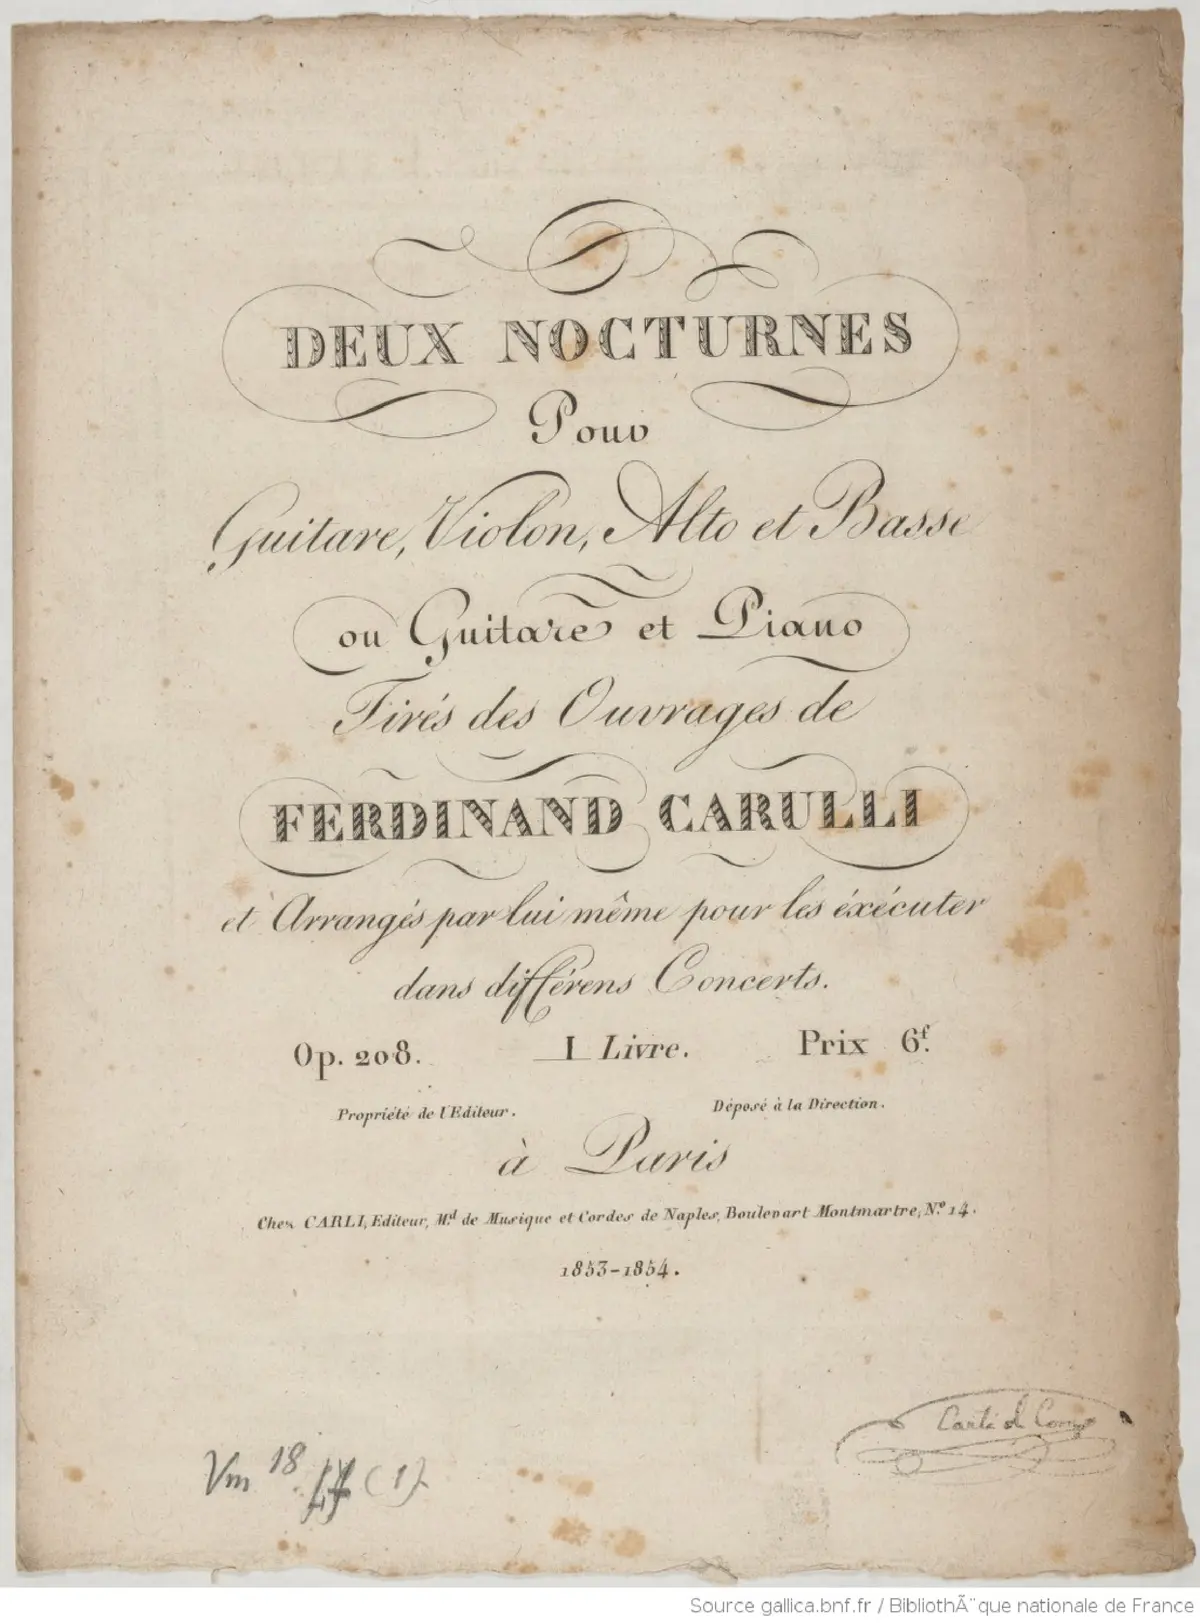 DEUX NOCTURNES
Pour
Guitare, Violon, Alto et Basse
ou Guitare et Piano
Tirés des Ouvrages de
FERDINAND CARULLI
et Arrangés par lui même pour les éxécuter
dans différens Concerts.
Op. 208. I Livre. Prix 6f.
Propriété de l'Editeur. Déposé à la Direction.
à Paris
Chez CARLI, Editeur, Md. de Musique et Cordes de Naples, Boulevart Montmartre, No. 14.
1853-1854.
Carli
Vm 18 (1)
Source gallica.bnf.fr / BibliothÃ¨que nationale de France